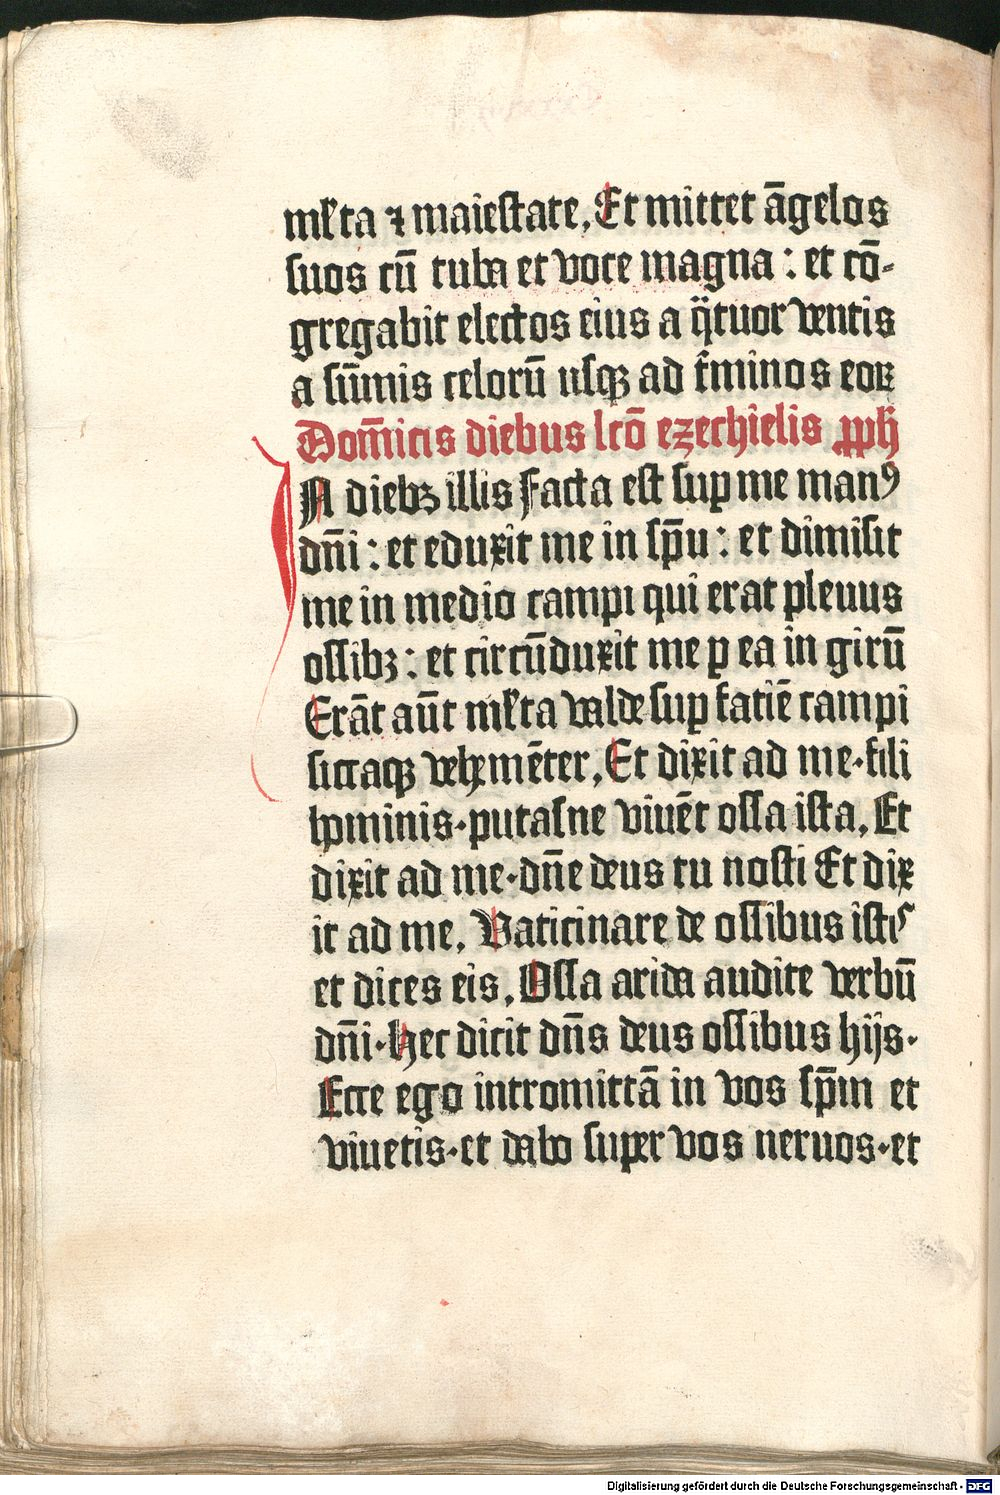 ml̄ta ⁊ maiestate. Et mittet āgelos
suos cū tuba et voce magna : et cō-
gregabit electos eius a q̈tuor ventis
a sūmis celorū usqꝫ ad t̄minos eoꝝ
Dom̄icis diebus lcō ezechielis ꝓph
IN diebꝫ illis Facta est suꝑ me manꝰ
dn̄i : et eduxit me in sp̄u : et dimisit
me in medio campi qui erat plenus
ossibꝫ : et circūduxit me ꝑ ea in girū
Erāt aūt ml̄ta valde suꝑ faciē campi
siccaqꝫ vehemēter. Et dixit ad me · fili
hominis · putasne viuēt ossa ista. Et
dixit ad me · dn̄e deus tu nosti Et dix
it ad me. Vaticinare de ossibus isti⸍
et dices eis. Ossa arida audite verbū
dn̄i · Hec dicit dn̄s deus ossibus hijs ·
Ecce ego intromittā in vos sp̄m et
viuetis · et dabo super vos neruos · et
Digitalisierung gefördert durch die Deutsche Forschungsgemeinschaft - DFG